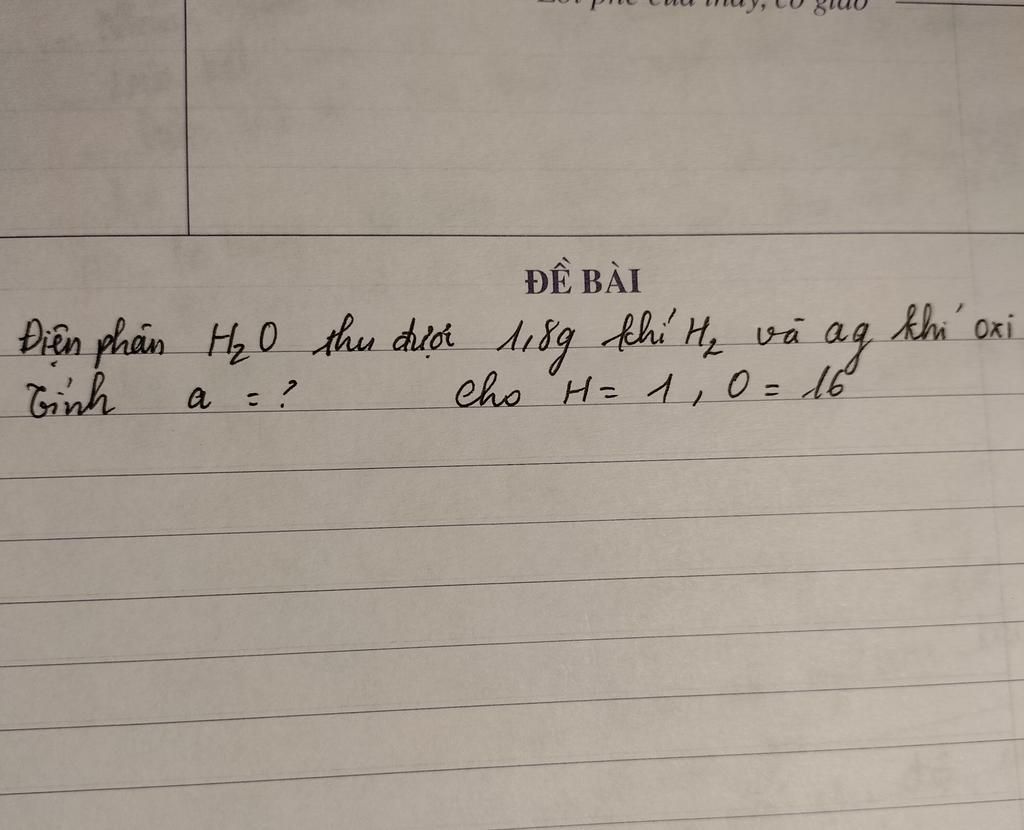 Lời phê của thầy, cô giáo
ĐỀ BÀI
Điện phân H₂O thu được 1,8g khí H₂ và ag khí oxi
Tính a = ? Cho H = 1, O = 16